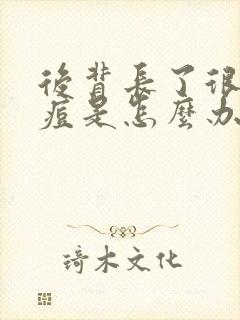 後背長了很
痘是怎麼办
琦木文化